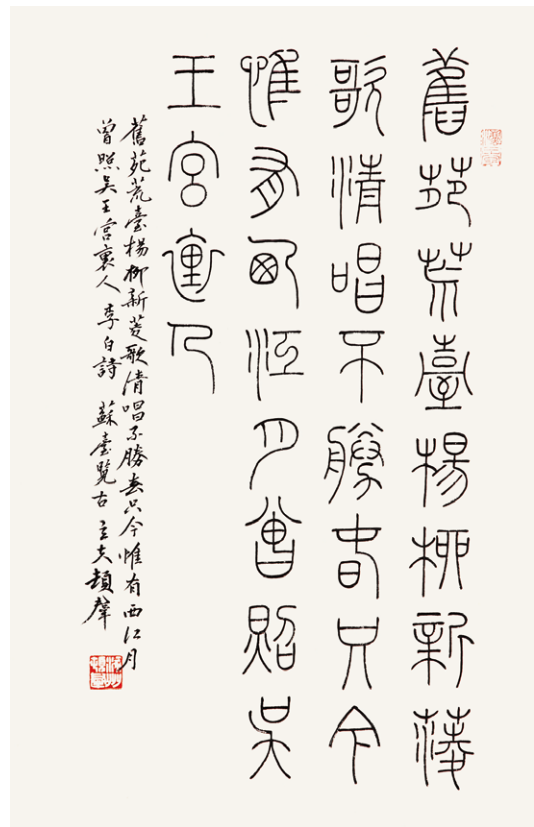 舊苑荒臺楊柳新菱
歌清唱不勝春只今
惟有西江月曾照吳
王宮裏人
舊苑荒臺楊柳新菱歌清唱不勝春只今惟有西江月
曾照吳王宮裏人 李白詩 蘇臺覽古